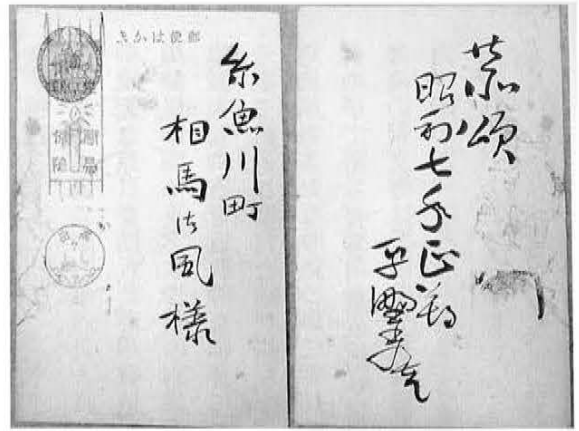 郵便はかき
糸魚川町
相馬御風様
恭頌
昭和七年正
平野秀吉